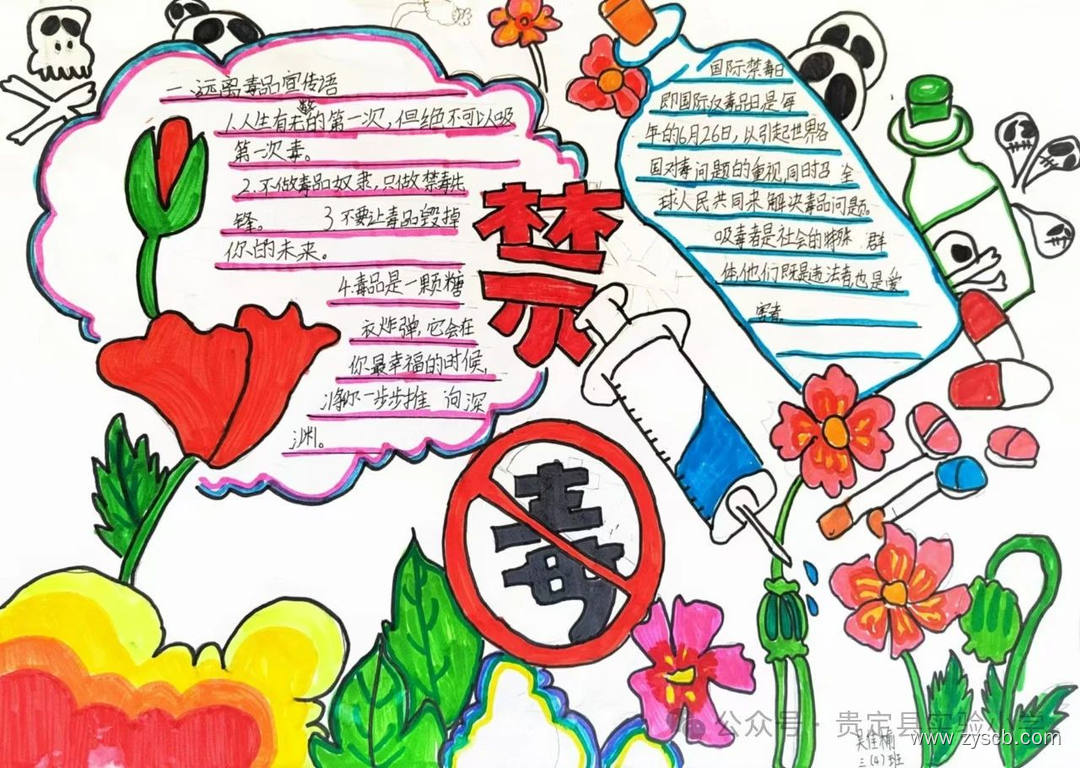 一.远离毒品宣传语
1.人生有无数的第一次,但绝不可以吸
第一次毒。
2.不做毒品奴隶,只做禁毒先
锋。 3不要让毒品毁掉
你的未来。
4.毒品是一颗糖
衣炸弹,它会在
你最幸福的时候,
将你一步步推 向深
渊。
禁
毒
国际禁毒日
即国际反毒品日是每
年的6月26日,以引起世界各
国对毒问题的重视,同时召 全
球人民共同来解决毒品问题。
吸毒者是社会的特殊 群
体他们既是违法者也是受
害者
公众号·贵定县实验小学
吴佳楠
三(4)班
www.zyscb.com